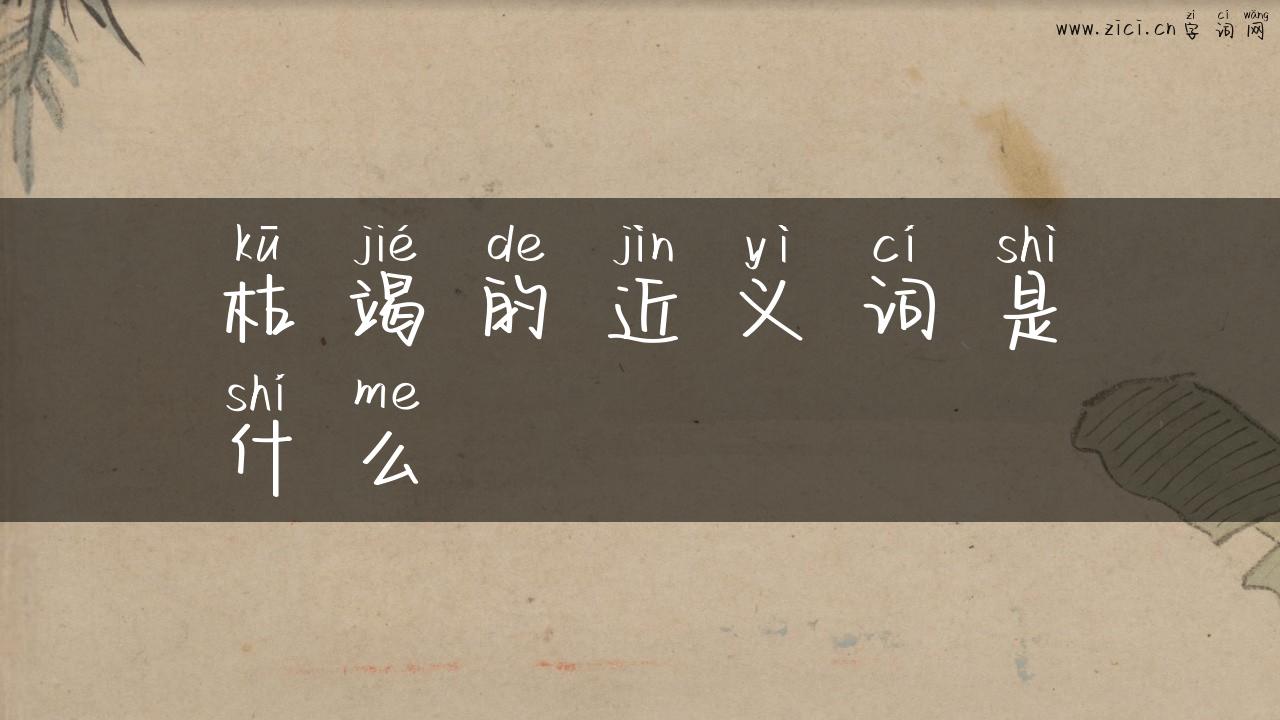 zì cí wǎng
www.zici.cn 字词网
kū jié de jìn yì cí shì
枯竭的近义词是
shí me
什么